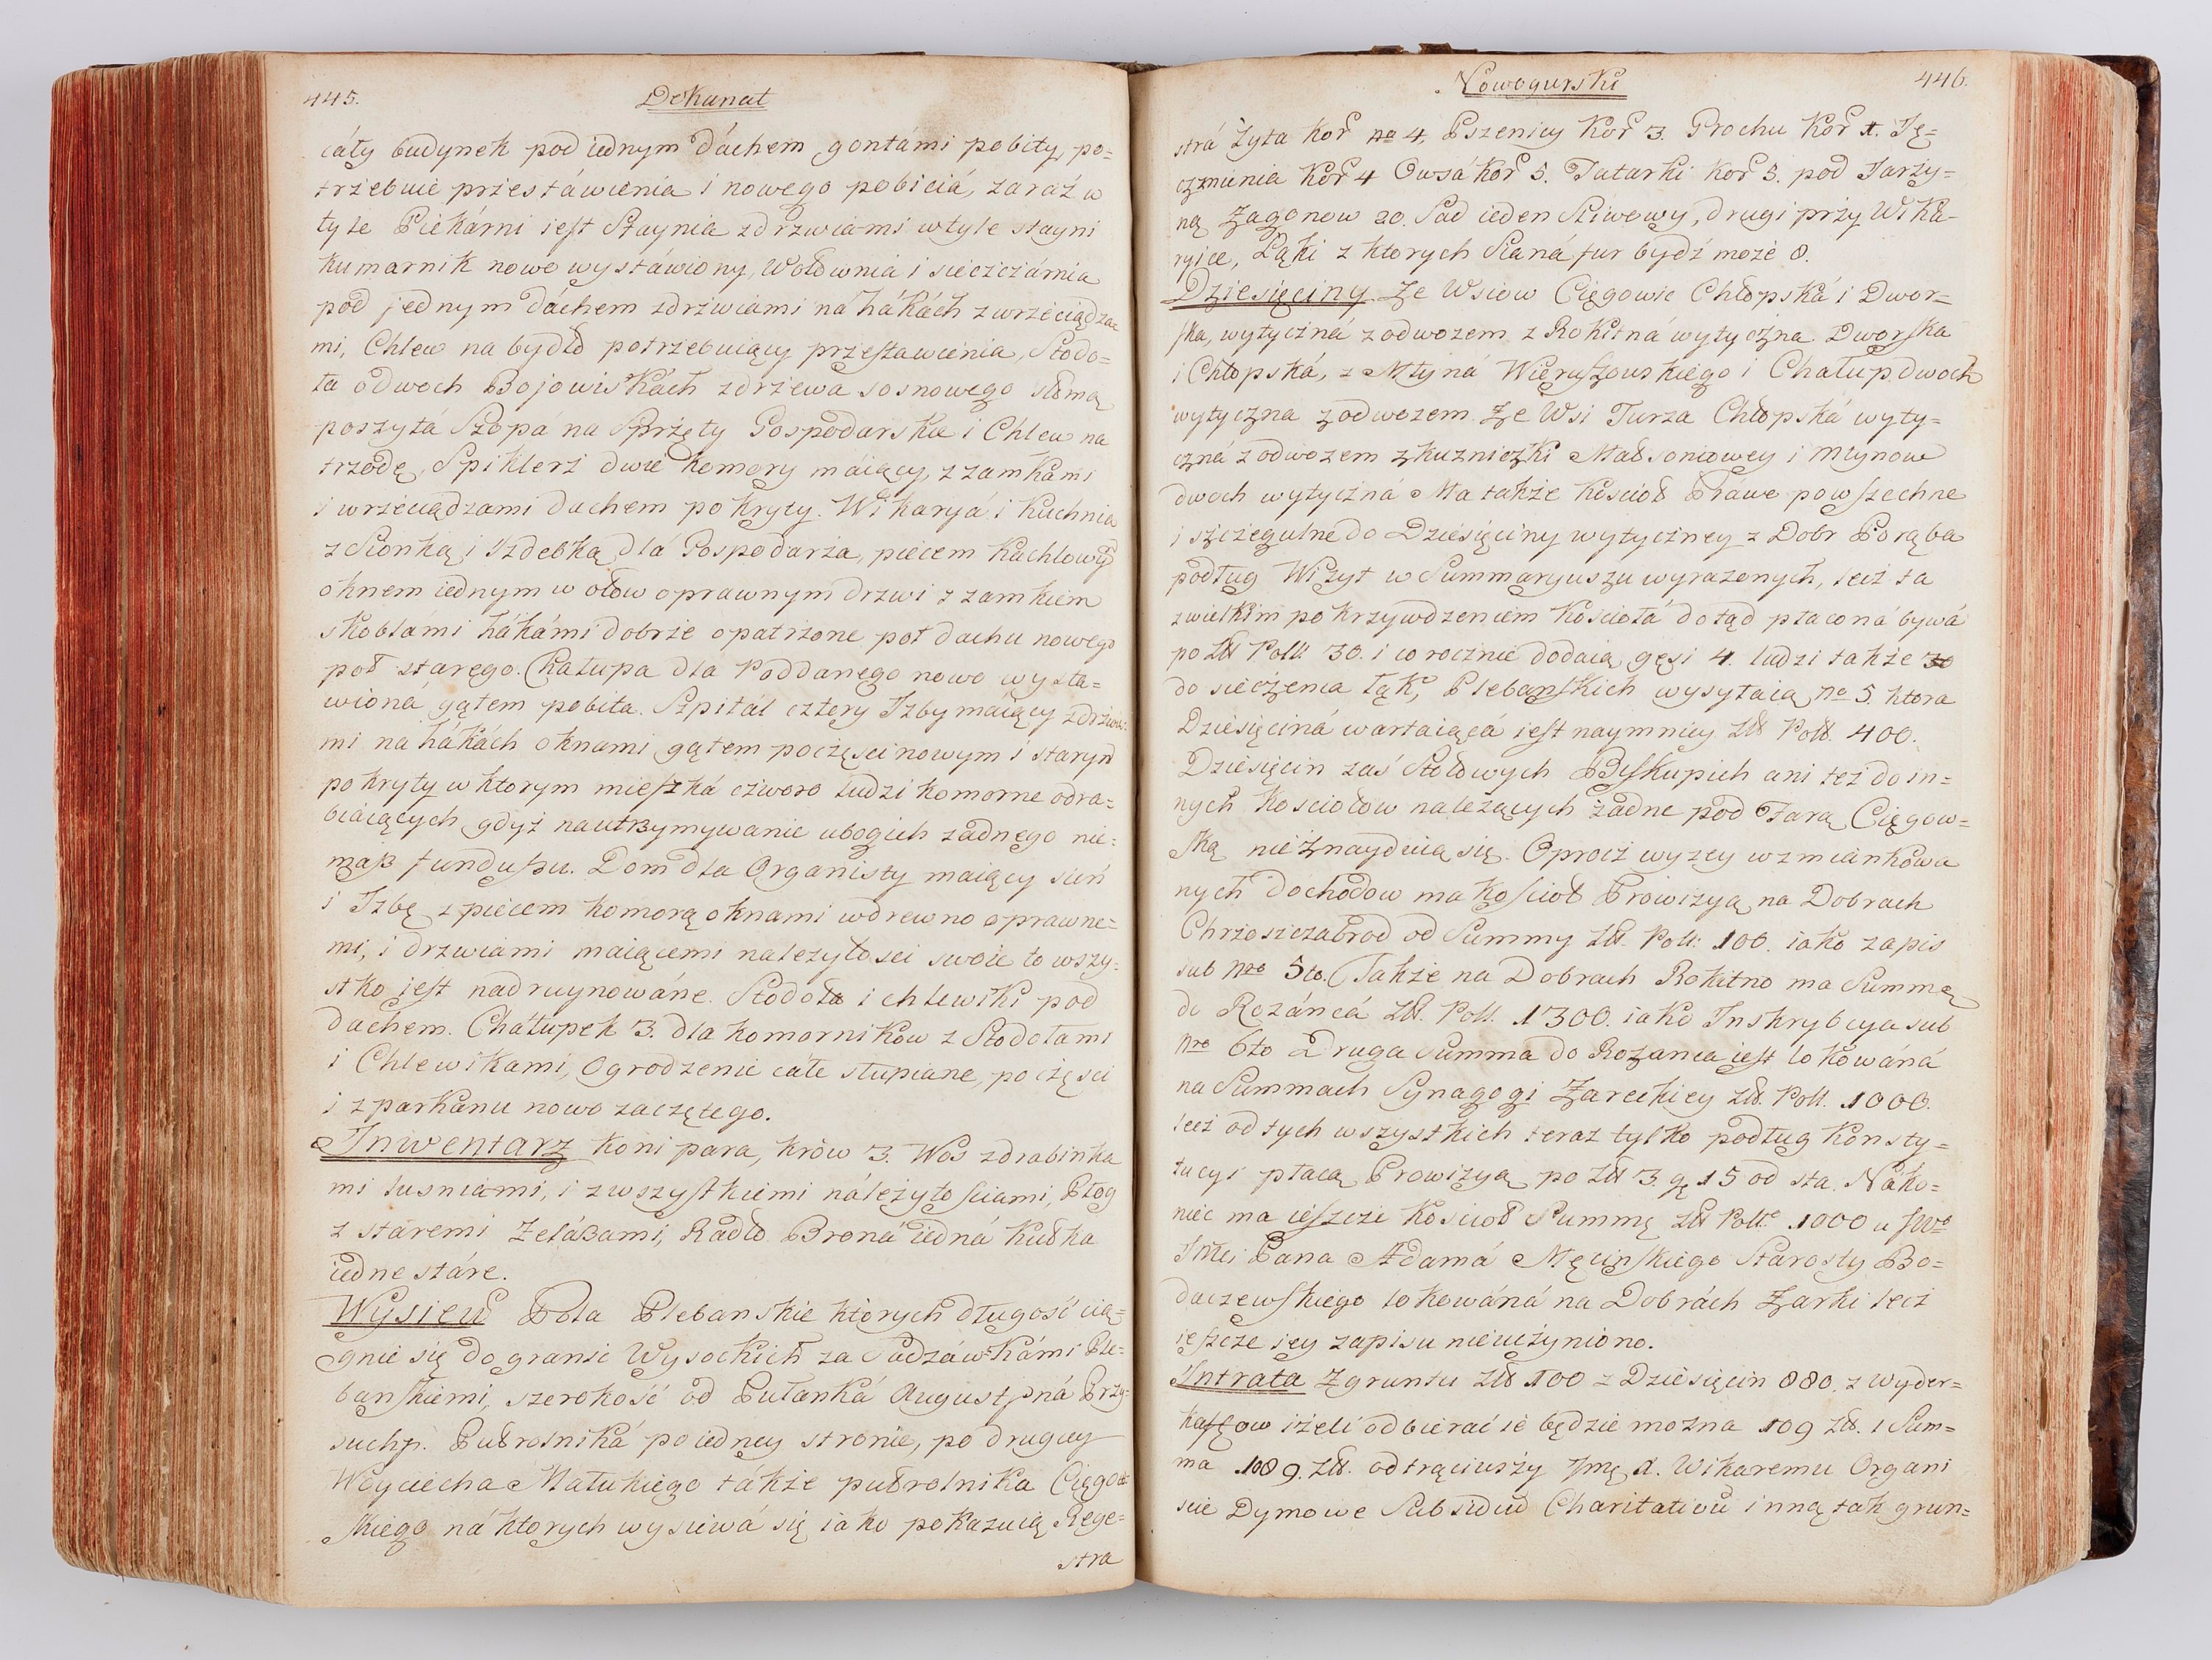 445.
Dekanat
cáły budynek pod iednym dáchem gontámi pobity, po=
trzebuie przestáwienia i nowego pobiciá, zaraz w
tyle Piekárni iest Staynia z drzwiami w tyle stayni
kumarnik nowo wystáwiony, Wołownia i sieczcárnia
pod jednym dáchem zdrzwiami na hákách z wrzeciądza=
mi, Chlew na bydło potrzebuiący przestawienia, Stodo=
ła o dwoch Bojowiskách z drzewa sosnowego słomą
poszytá Szopá na Sprzęty Gospodarskie i Chlew na
trzodę, Spiklerz dwie komory máiący, z zamkámi
i wrzeciądzami dachem pokryty. Wikaryá i Kuchnia
z Sionką i Izdebką dlá Gospodarza, piecem kachlowym
oknem iednym w ołow oprawnym drzwi z zamkiem
skoblámi hákámi dobrze opatrzone poł dachu nowego
poł starego. Chałupa dla Poddanego nowo wysta=
wioná gątem pobita. Szpitál cztery Izby máiący zdrzwia=
mi na hákách oknami gątem poczęsci nowym i starym
pokryty w ktorym mieszká czworo ludzi komorne odra=
biáiących gdyż na utrzymywanie ubogich żadnego nie=
masz funduszu. Dom dla Organisty maiący sień
i Izbę z piecem komorą oknami w drewno oprawne=
mi, i drzwiami maiącemi należytosci swoie to wszy=
stko iest nadruynowáne. Stodoła i chlewiki pod
dachem. Chałupek 3. dla komorników z Stodołami
i Chlewikami, Ogrodzenie całe słupiane, po częsci
i z parkanu nowo zaczętego.
Inwentarz koni para, krów 3. Wos z drabinka
mi lusniami, i z wszystkiemi náleżytosciami, Płog
z stáremi Zelázami, Radło Broná iedná Kułka
iedne stáre.
Wysiew Pola Plebanskie ktorych długość cią=
gnie się do gransc Wysockich za Sadzáwkámi Ple=
banskiemi, szerokość od Pułanká Augustyná Przy=
suchy. Pułrolniká po iedney stronie, po drugiey
Woyciecha Matuckiego tákże pułrolnika Cięgow
skiego ná ktorych wysiewá się iako pokazuią Rege=
stra
Nowogurski
446.
strá Zyta kor no 4. Pszenicy kor 3. Grochu kor 1. Ję=
czmienia kor 4 Owsá kor 5. Tatarki kor 3. pod Jarzy=
ną zagonow 20. Sad ieden Sliwowy, drugi przy Wika-
ryice, Łąki z ktorych Sianá fur bydź może 8.
Dziesięciny Ze Wsiow Cięgowic Chłopská i Dwor=
ska, wytyczná z odwozem z Rokitná wytyczna Dworska
i Chłopská, z Młyná Wieruszowskiego i Chałup dwoch
wytyczna z odwozem. Ze Wsi Turza Chłopská wyty=
czná z odwozem z kuzniczki Masłoniowey i Młynow
dwoch wytyczná Ma także kościoł Práwo powszechne
i szczegulne do Dziesięciny wytyczney z Dobr Porąba
podług Wizyt w Summaryuszu wyrażonych, lecz ta
z wielkim pokrzywdzeniem Kościołá dotąd płaconá bywá
po Zlł Poll: 30. i corocznie dodaią gęsi 4. ludzi także
do sieczenia łąk, Plebanskich wysyłaią no 5. ktora
Dziesięciná wartaiącá iest naymniey Zlł Poll. 400.
Dziesięcin zaś Stołowych Biskupich ani też do in=
nych kosciołow należących żadne pod Farą Cięgow=
ską nie znayduią się. Oprocz wyżey wzmiankowa
nych dochodow ma kościoł Prowizyą na Dobrach
Chrzoszczabrod od Summy Zlł. Poll: 100. iako zapis
sub Nro 5to. Także na Dobrach Rokitno ma Summę
do Rozáncá Zlł. Poll. 1300. iako Inskrypcya sub
Nro 6to Druga Summa do Rozanca iest lokowáná
na Summach Synagogi Zareckiey Zlł. Poll. 1000.
lecz od tych wszystkich teraz tylko podług Konsty=
tucyi płacą Prowizyą po Zlł 3. gr 15 od sta. Náko=
niec ma ieszcze Kościoł Summę Zlł Poll. 1000 u JWo
Jmci Pana Adamá Męcinskiego Starosty Bo=
daczewskiego lokowáná na Dobrách Zarki lecz
ieszcze iey zapisu nieuczyniono.
Intrata Zgruntu Zlł 100 z Dziesięcin 880. z Wyder=
kaffow ieżeli odbierać ie będzie można 109 Zlł. i Sum=
ma 1089. Zlł. odtrąciwszy Jmę X. Wikaremu Organi
scie Dymowe Subsidiũ Charitativũ inną tak grun=